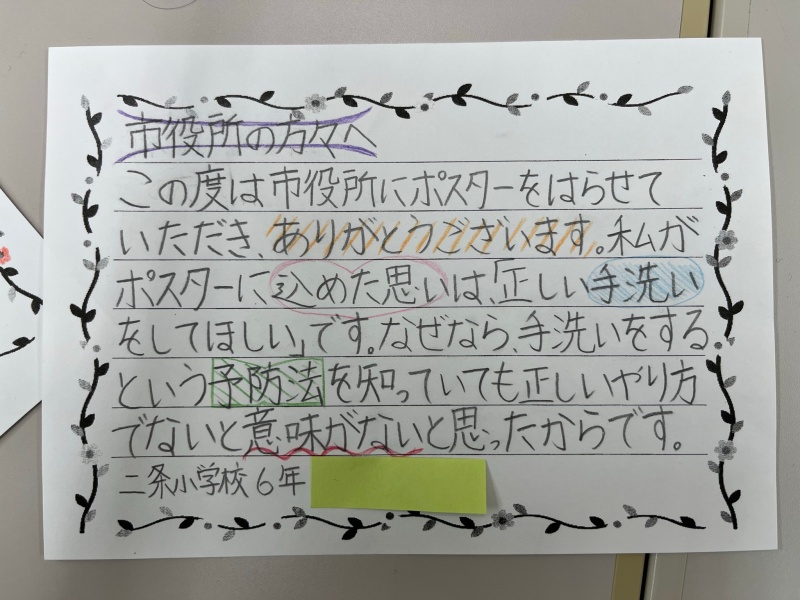 市役所の方々へ
この度は市役所にポスターをはらせて
いただき、ありがとうございます。私が
ポスターに込めた思いは、「正しい手洗い
をしてほしい」です。なぜなら、手洗いをする
という予防法を知っていても正しいやり方
でないと意味がないと思ったからです。
二条小学校6年